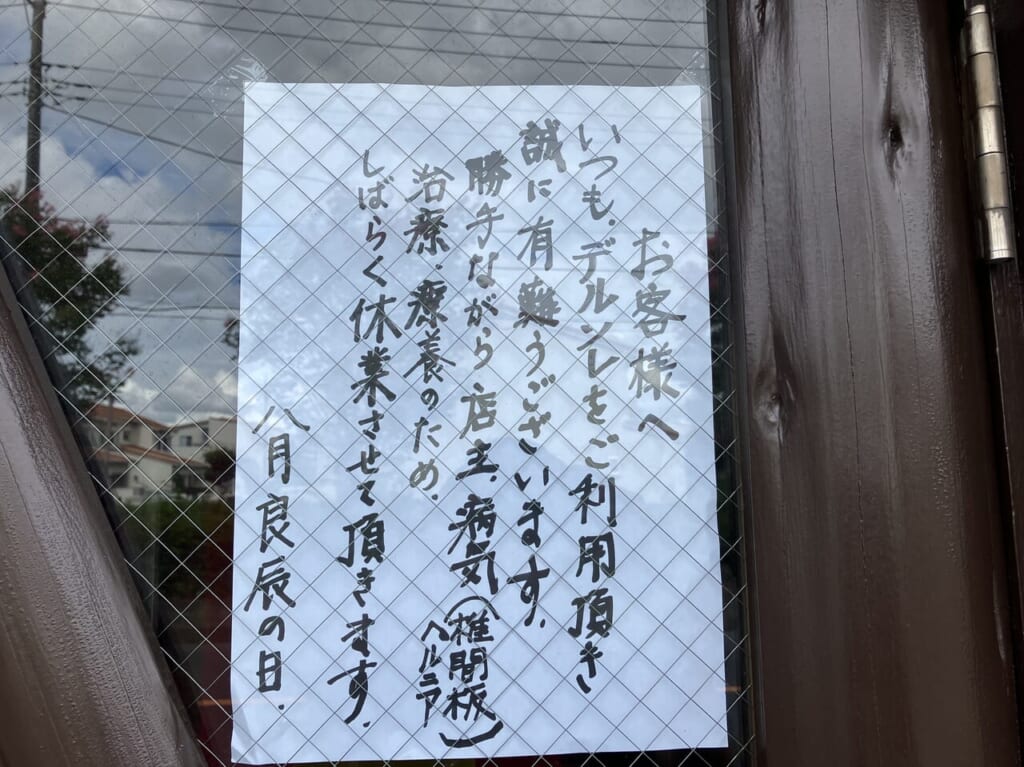 お客様へ
いつも.デルソレをご利用頂き
誠に有難うございます.
勝手ながら店主.病気(椎間板
ヘルニア)
治療.療養のため.
しばらく休業させて頂きます.
八月良辰の日.